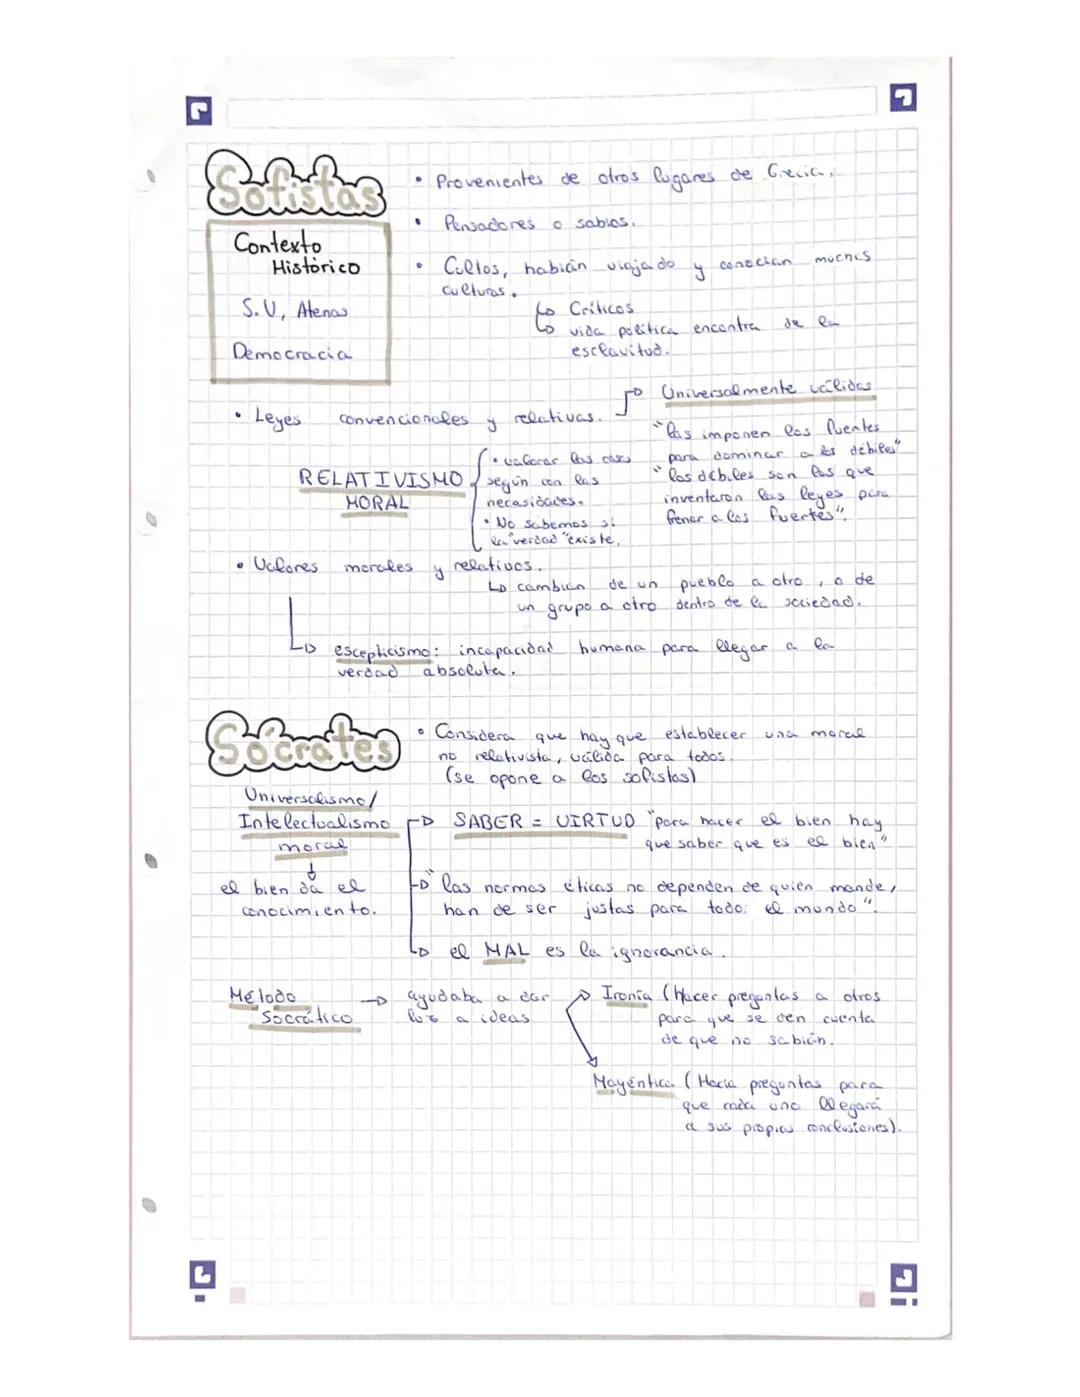 Sofistas
Contexto
Histórico
S.V, Atenas
Democracia
• Provenientes de otros lugares de Grecia.
• Pensadores o sabios.
• Cultos, habían viajado y conocían muchas
culturas.
↳ Críticos
↳ vida política encontra de la
esclavitud.
• Leyes convencionales y relativas.
Universalmente válidas
"las imponen los fuertes
para dominar a los débiles"
"los débiles son los que
inventaron las leyes para
frenar a los fuertes".
RELATIVISMO
MORAL
• valorar las cosas
según con las
necesidades.
• No sabemos si
la "verdad" existe.
• Valores morales y relativos.
↳ cambian de un pueblo a otro, o de
un grupo a otro dentro de la sociedad.
↳ escepticismo: incapacidad humana para llegar a la
verdad absoluta.
Sócrates
• Considera que hay que establecer una moral
no relativista, válida para todos.
(se opone a los sofistas)
Universalismo/
Intelectualismo
moral
↓
el bien da el
conocimiento.
→ SABER = VIRTUD "para hacer el bien hay
que saber que es el bien"
→ "las normas éticas no dependen de quien mande,
han de ser justas para todo; el mundo".
→ el MAL es la ignorancia.
Método
Socrático
→ ayudaba a dar
luz a ideas
→ Ironía (Hacer preguntas a otros
para que se den cuenta
de que no sabían.
Mayéntica (Hacía preguntas para
que cada uno llegará
a sus propias conclusiones).